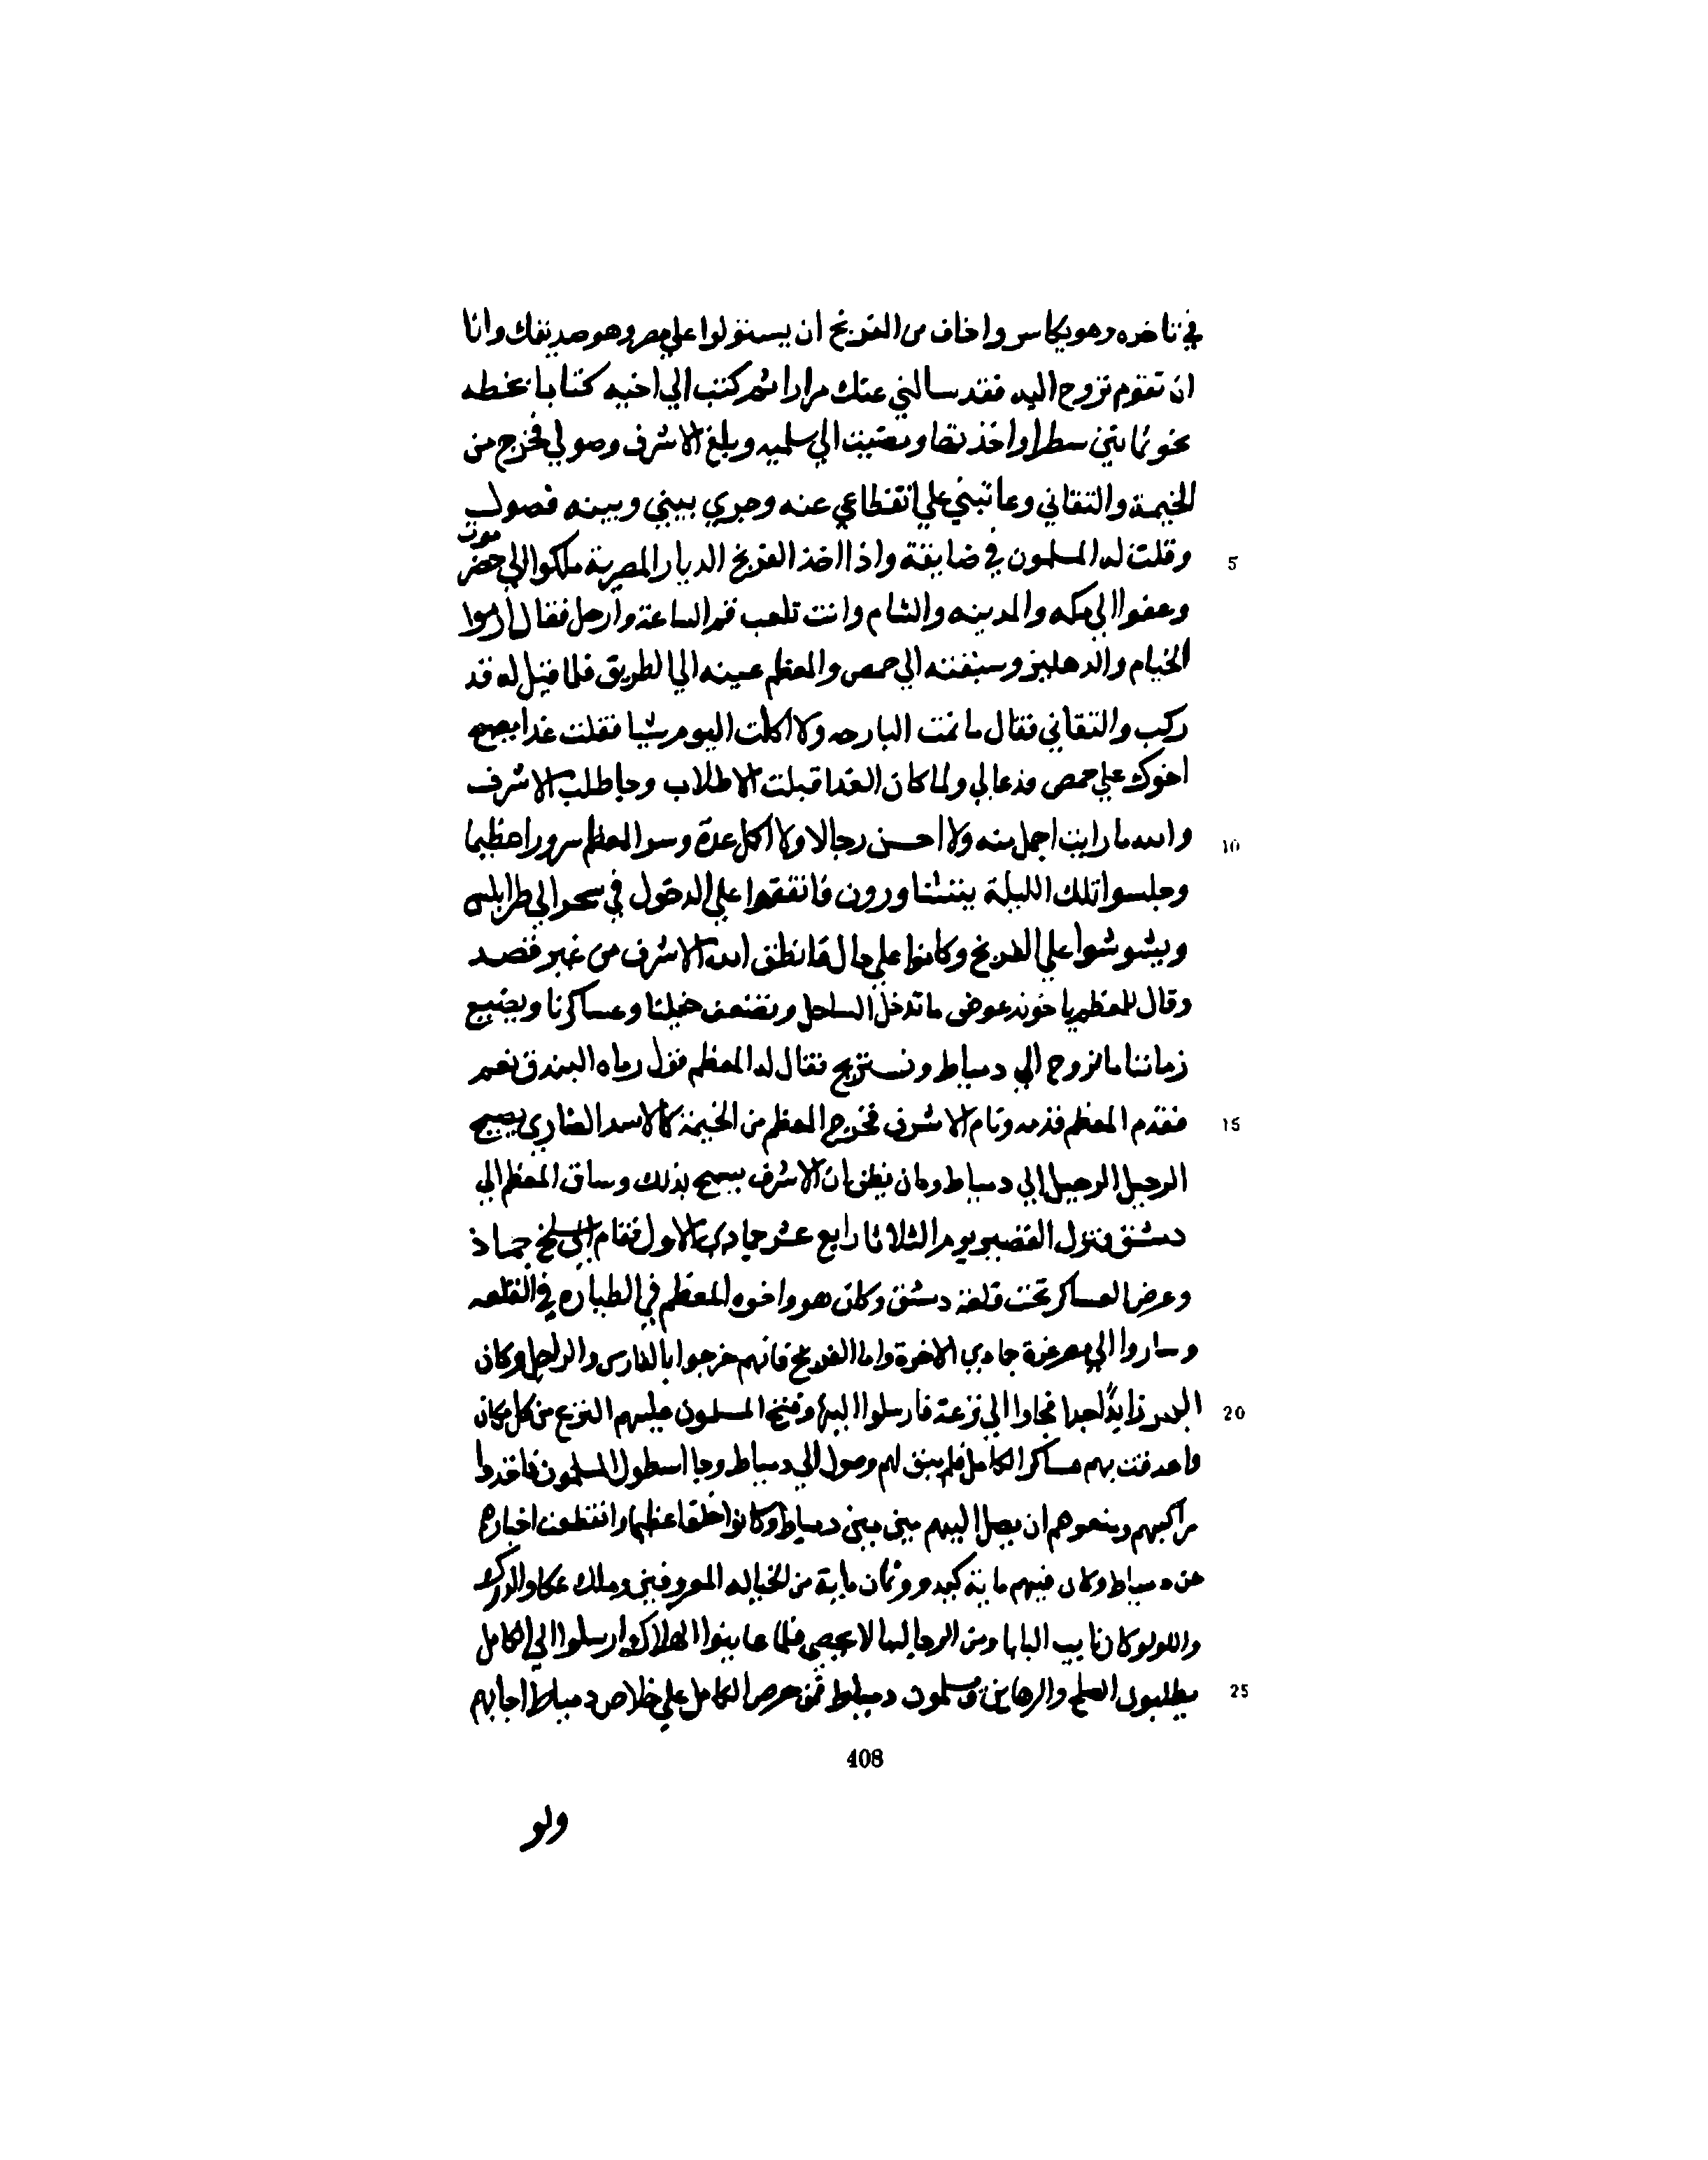 في تاخره وهو يكاسر واخاف من الفرنج ان يستولوا علي مصر وهو صديقك وانا
ان تقوم تروح اليه فقد سالني عنك مرارا ثم كتب الي اخيه كتابا بخطه
نحو ثمانين سطرا واخذته ومضيت الي سلميه وبلغ الاشرف وصولي فخرج من
الخيمة والتقاني وعاتبني علي انقطاعي عنه وجري بيني وبينه فصول
وقلت له المسلمون في ضايقة واذا اخذ الفرنج الديار المصرية ملكوا الي حضر موت
وعفوا الي مكه والمدينه والشام وانت تلعب قم الساعة وارحل فقال ارموا
الخيام والدهليز وسبقته الي حمص والمعظم عينه الي الطريق فلما قيل له قد
ركب والتقاني فقال ما نمت البارحه ولا اكلت اليوم شيا فقلت غدا يصبح
اخوك علي حمص فدعا لي ولما كان الغد اقبلت الاطلاب وجا طلب الاشرف
والله ما رايت اجمل منه ولا احسن رجالا ولا اكمل عدة وسر المعظم سرورا عظيما
وجلسوا تلك الليلة يتشاورون فاتفقوا علي الدخول في سحر الي طرابلس
ويشوشوا علي الفرنج وكانوا علي حال فانطق الله الاشرف من غير قصد
وقال للمعظم يا خوند عوض ما ندخل الساحل وتضعف خيلنا وعساكرنا ويضيع
زماننا ما نروح الي دمياط ونستريح فقال له المعظم قول رماه البندق نعم
فقدم المعظم قدمه ونام الاشرف فخرج المعظم من الخيمة كالاسد الضاري يصيح
الرحيل الرحيل الي دمياط وكان يظن ان الاشرف يسمح بذلك وساق المعظم الي
دمشق فنزل القصير يوم الثلاثا رابع عشر جمادي الاول فقام الي سلخ جماذ
وعرض العساكر تحت قلعة دمشق وكان هو واخوه المعظم في الطياره في القلعه
وساروا الي مصر غرة جمادي الاخرة واما الفرنج فانهم خرجوا بالفارس والراجل وكان
البحر زايدا جدا فجاوا الي ترعة فارسلوا اليها وفتح المسلمون عليهم الترع من كل مكان
واحدقت بهم عساكر الكامل فلم يبق لهم وصول الي دمياط وجا اسطول المسلمون فاخذوا
مراكبهم ومنعوهم ان يصل اليهم ميني ميني دمياط وكانوا خلقا عظيما وانقطعت اخبارهم
عن دمياط وكان فيهم ماية كبد وثمان ماية من الخياله المعروفين وملك عكا والدرك
واللوكان نايب البابا ومن الرجاله ما لا يحصي فلما عاينوا الهلاك ارسلوا الي الكامل
يطلبون الصلح والرهاين ويسلمون دمياط فمن حرص الكامل علي خلاص دمياط اجابهم
5
10
15
20
25
408
ولو